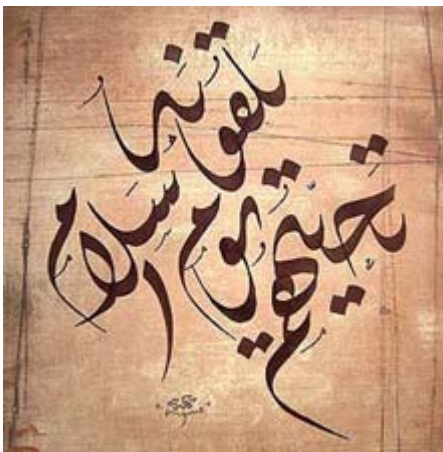 تحيتهم يوم يلقونه سلام